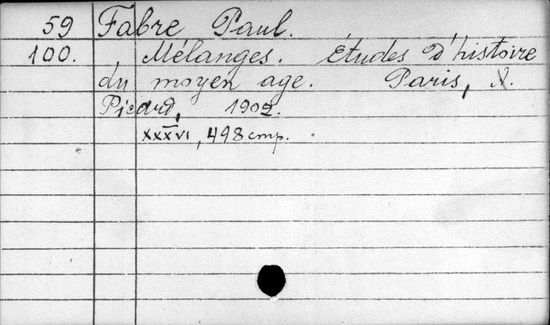 59 Fabre Paul.
100. Mélanges. Études d'histoire
du moyen age. Paris, A.
Picard, 1902.
XXXVI, 498 стр.